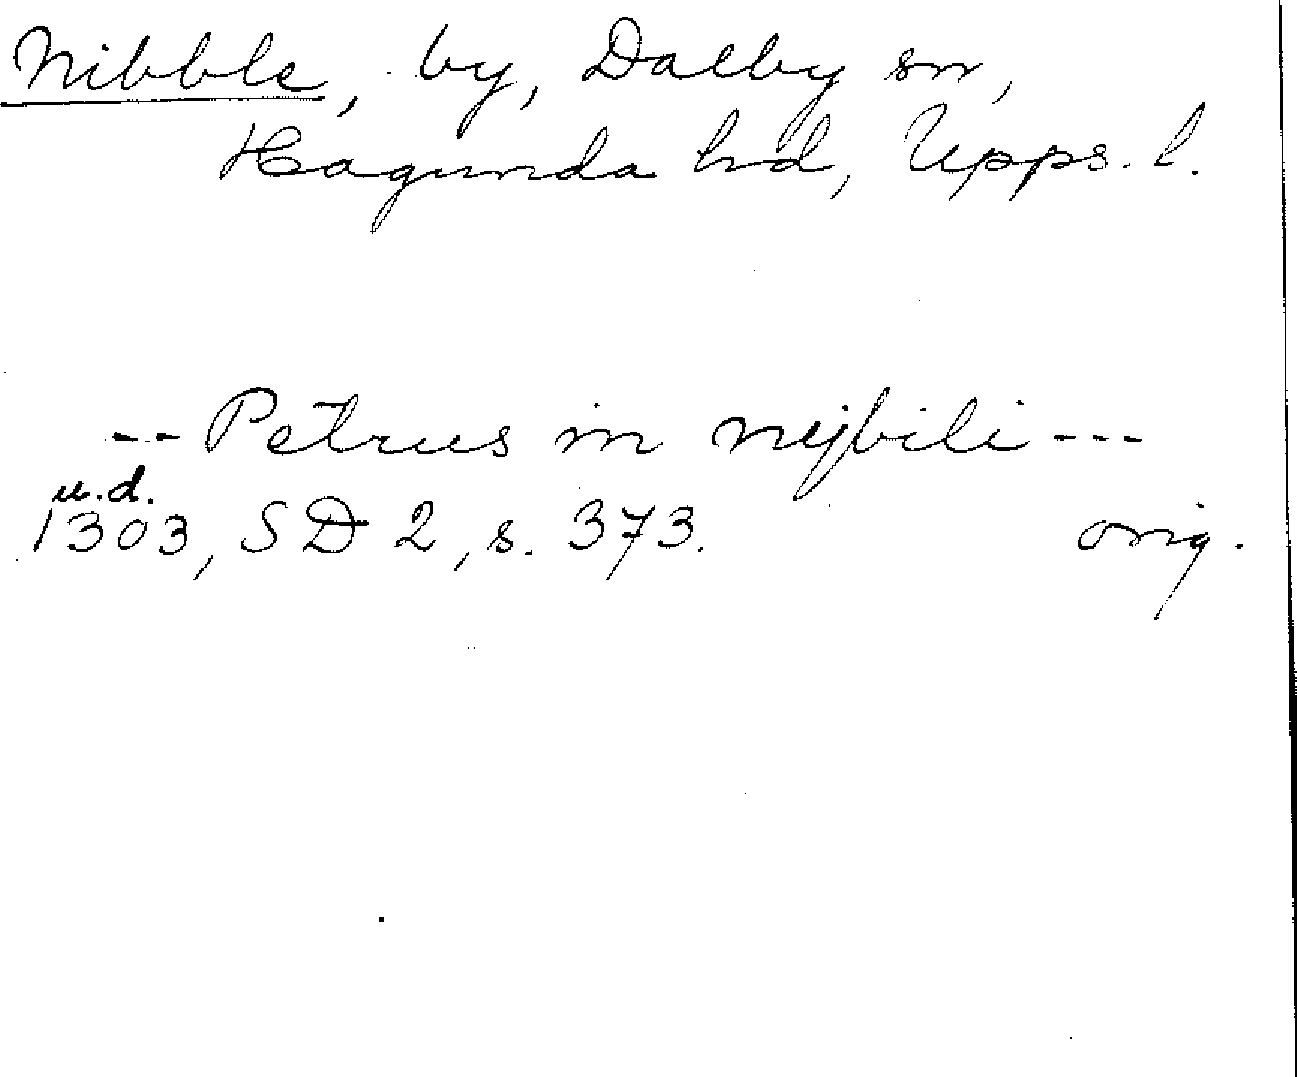 Nibble, by, Dalby sn,
Hagunda hd, Upps. l.
-- Petrus in nijbili ---
u.d.
1303, SD 2, s. 373. orig.